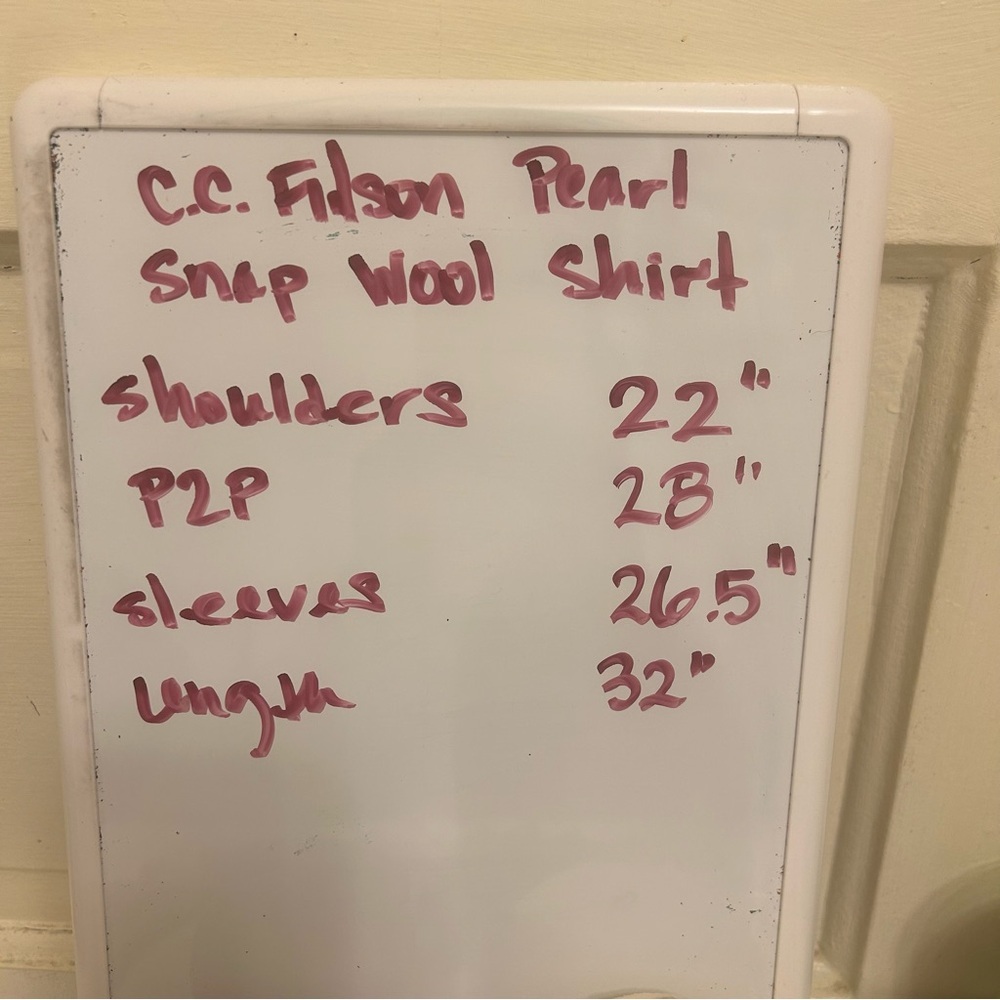 C.C. Filson Pearl
Snap Wool Shirt
Shoulders 22"
P2P 28"
Sleeves 26.5"
Length 32"